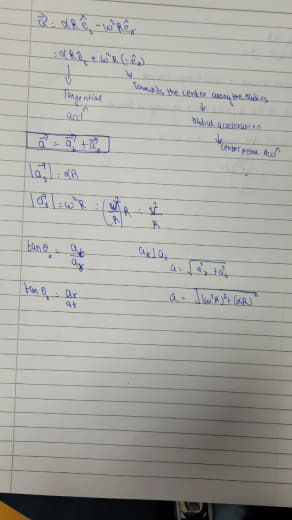 a⃗ = αR ê_t - ω²R ê_r
= αR ê_t + ω²R (-ê_r)
Tangential accⁿ
Towards the center along the radius
Radial acceleration
Centripetal Accⁿ
a⃗ = a⃗_t + a⃗_r
|a⃗_t| = αR
|a⃗_r| = ω²R = (v²/R²) R = v²/R
tan θ = a_t/a_r
a_r ⊥ a_t
a = √(a_r² + a_t²)
tan θ = a_r/a_t
a = √((ω²R)² + (αR)²)